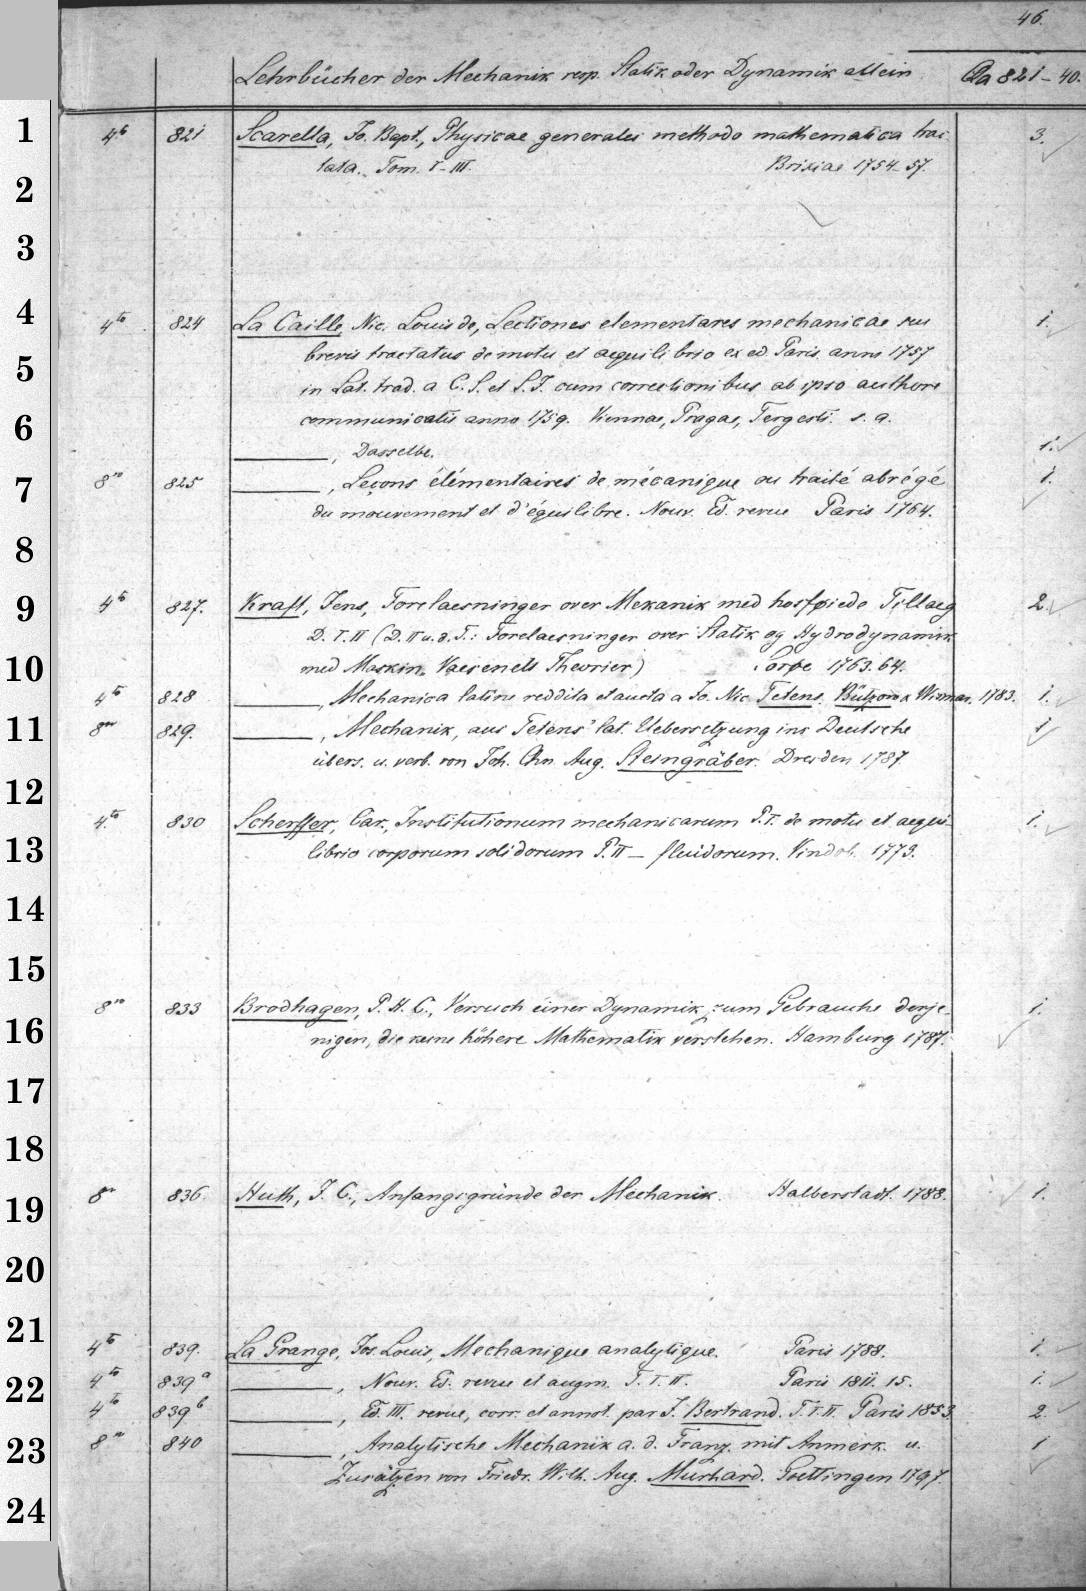 46.
Lehrbücher der Mechanik resp. Statik oder Dynamik allein Qa 821-40.
1
4to 821 Scarella, Jo. Bapt., Physicae generalis methodo mathematica trac- 3.
tata. Tom. I-III. Brixiae 1754-57.
2
3
4
4to 824 La Caille, Nic. Louis de, Lectiones elementares mechanicae seu 1.
brevis tractatus de motu et aequilibrio ex ed. Paris. anni 1757
5
in Lat. trad. a C. S. et S. J. cum correctionibus ab ipso authore
communicatis anno 1759. Viennae, Pragae, Tergesti. s. a.
6
———, Dasselbe. 1.
7
8vo 825 ———, Leçons élémentaires de mécanique ou traité abrégé 1.
du mouvement et d'équilibre. Nouv. Ed. revue Paris 1764.
8
9
4to 827. Kraft, Jens, Forelaesninger over Mekanik med hosføiede Tillaeg 2.
D. I. II (D. II u. d. T.: Forelaesninger over Statik og Hydrodynamik
10
med Maskin-Vaesenets Theorier) Sorøe 1763.64.
4to 828 ———, Mechanica latine reddita et aucta a Jo. Nic. Tetens. Bützow & Wismar. 1783. 1.
11
8vo 829. ———, Mechanik, aus Tetens' lat. Uebersetzung ins Deutsche 1
übers. u. verb. von Joh. Chn. Aug. Steingräber. Dresden 1787
12
4to 830 Scherffer, Car., Institutionum mechanicarum P. I. de motu et aequi- 1.
13
librio corporum solidorum P. II — fluidorum. Vindob. 1773.
14
15
8vo 833 Brodhagen, P. H. C., Versuch einer Dynamik zum Gebrauche derje- 1.
16
nigen, die keine höhere Mathematik verstehen. Hamburg 1787.
17
18
8vo 836 Huth, J. C., Anfangsgründe der Mechanik. Halberstadt. 1788. 1.
19
20
21
4to 839. La Grange, Jos. Louis, Mechanique analytique. Paris 1788. 1.
22
4to 839a ———, Nouv. Ed. revue et augm. T. I. II. Paris 1811. 15. 1.
4to 839b ———, Ed. III. revue, corr. et annot. par J. Bertrand. T. I. II. Paris 1853 2.
23
8vo 840 ———, Analytische Mechanik a. d. Franz. mit Anmerk. u. 1
Zusätzen von Friedr. Wilh. Aug. Murhard. Goettingen 1797.
24